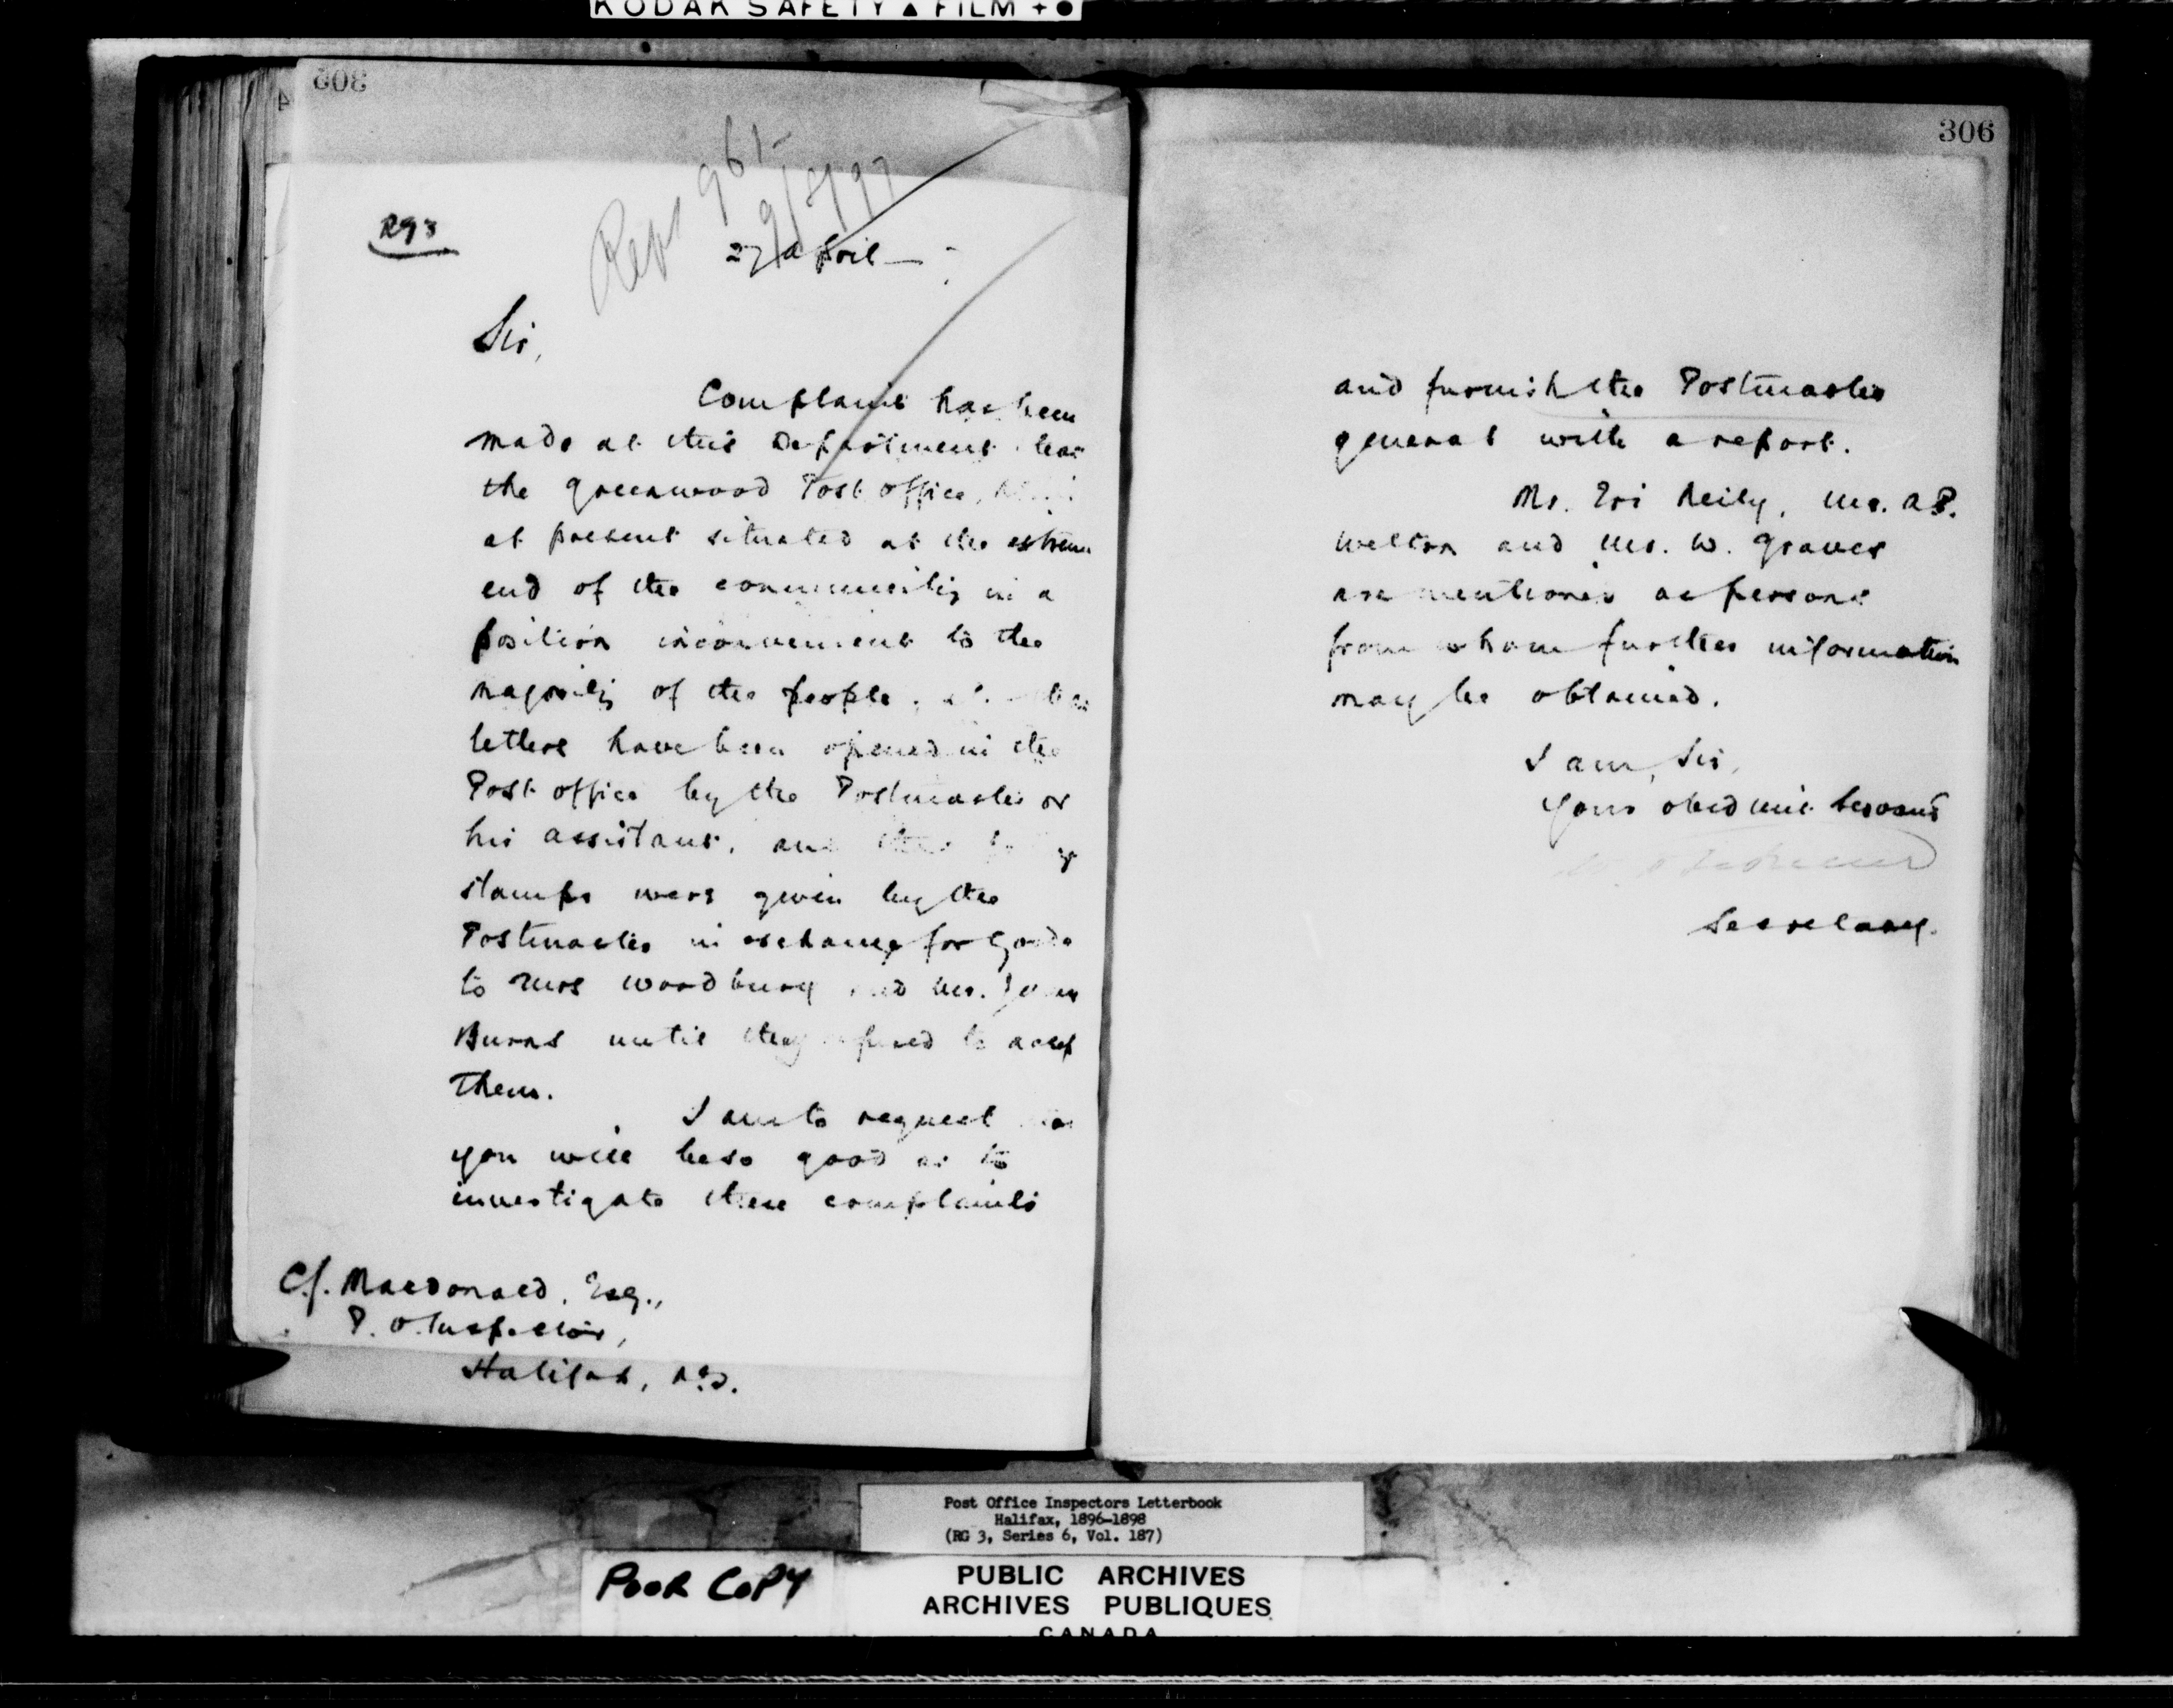 KODAK SAFETY ▲ FILM + ●
306
293
27 April
Sir,
Complaint has been
made at this Department that
the Greenwood Post office,
at present situated at the extreme
end of the community in a
position inconvenient to the
majority of the people,
letters have been opened in the
Post office by the Postmaster or
his assistant, and
stamps were given by the
Postmaster in exchange for goods
to Mrs Woodbury and Mr. John
Burns until they refused to accept
them.
I am to request that
you will be so good as to
investigate these complaints
C.J. Macdonald, Esq.,
P. O. Inspector,
Halifax, N.S.
306
and furnish the Postmaster
General with a report.
Mr. Eri Neily, Mr. A.P.
Welton and Mr. W. Graves
are mentioned as persons
from whom further information
may be obtained.
I am, Sir,
Your obedient Servant
Secretary.
Post Office Inspectors Letterbook
Halifax, 1896-1898
(RG 3, Series 6, Vol. 187)
POOR COPY
PUBLIC ARCHIVES
ARCHIVES PUBLIQUES
CANADA